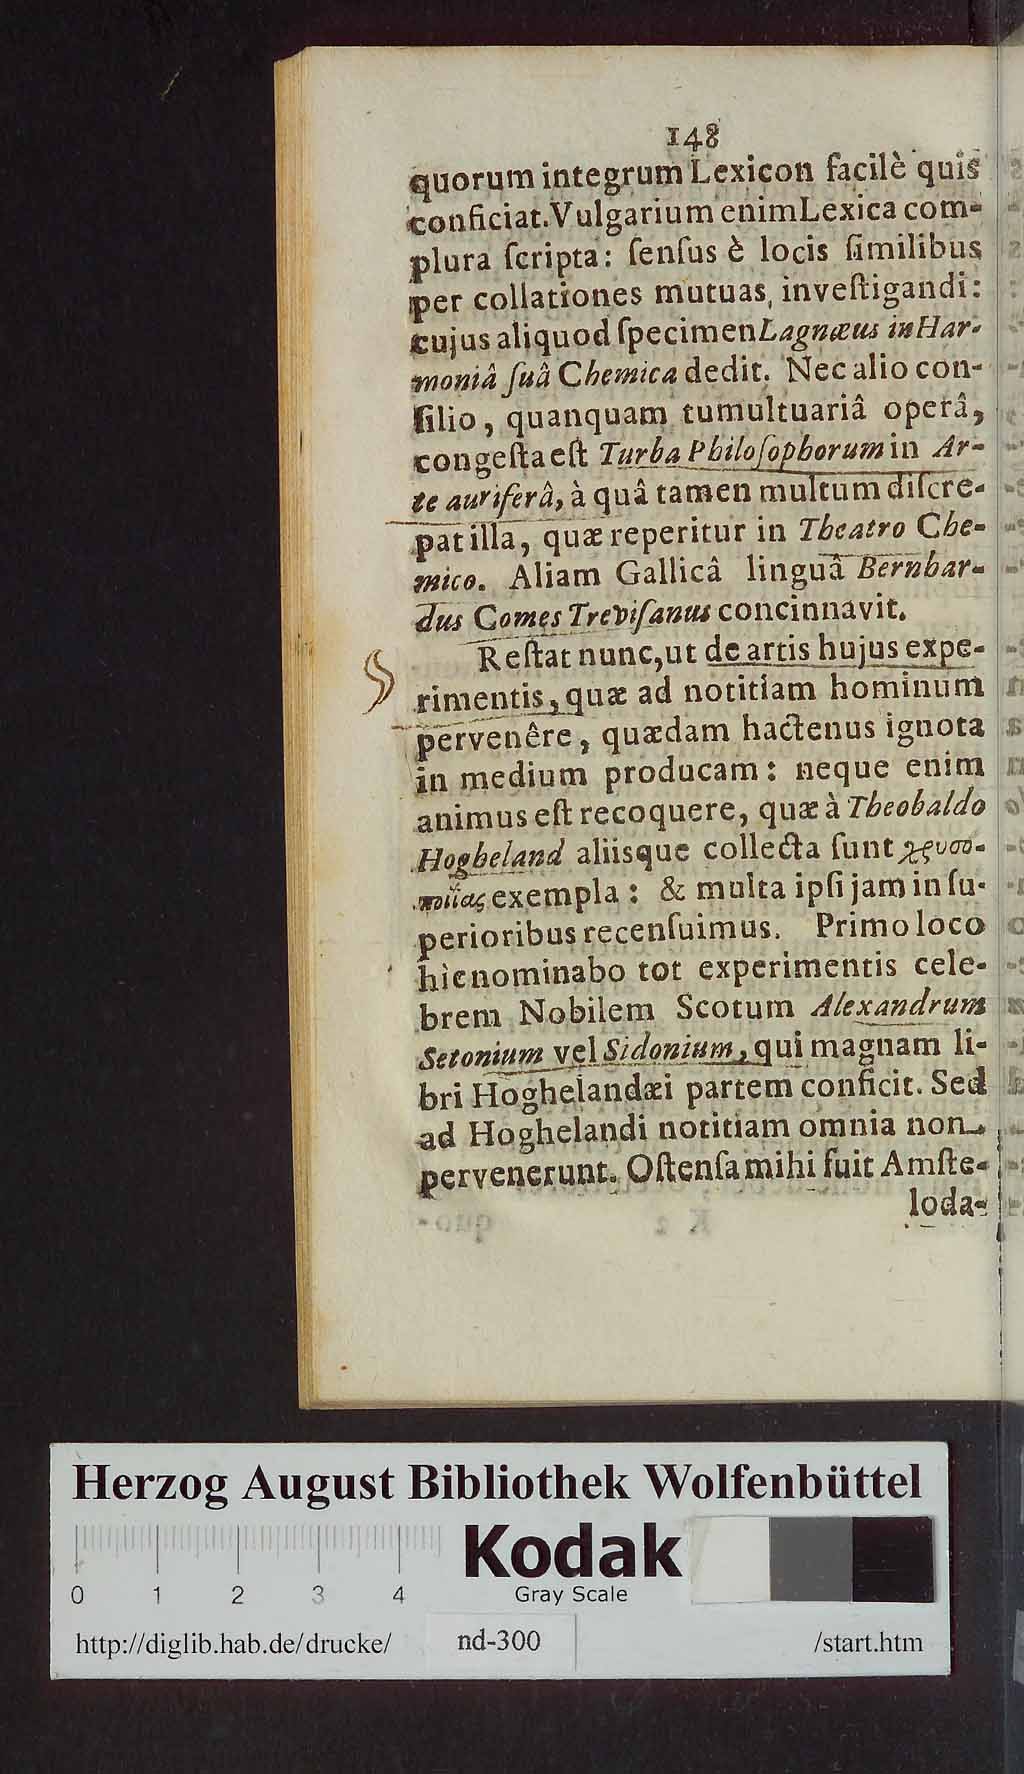 148
quorum integrum Lexicon facilè quis
conficiat. Vulgarium enim Lexica com-
plura ſcripta: ſenſus è locis ſimilibus
per collationes mutuas, inveſtigandi:
cujus aliquod ſpecimen Lagnæus in Har-
moniâ ſuâ Chemica dedit. Nec alio con-
ſilio, quanquam tumultuariâ operâ,
congeſta eſt Turba Philoſophorum in Ar-
te auriferâ, à quâ tamen multum diſcre-
pat illa, quæ reperitur in Theatro Che-
mico. Aliam Gallicâ linguâ Bernhar-
dus Comes Treviſanus concinnavit.
Reſtat nunc, ut de artis hujus expe-
rimentis, quæ ad notitiam hominum
pervenêre, quædam hactenus ignota
in medium producam: neque enim
animus eſt recoquere, quæ à Theobaldo
Hogheland aliisque collecta ſunt χρυσο-
ποιΐας exempla: & multa ipſi jam in ſu-
perioribus recenſuimus. Primo loco
hìc nominabo tot experimentis cele-
brem Nobilem Scotum Alexandrum
Setonium vel Sidonium, qui magnam li-
bri Hoghelandæi partem conficit. Sed
ad Hoghelandi notitiam omnia non
pervenerunt. Oſtenſa mihi fuit Amſte-
loda-
Herzog August Bibliothek Wolfenbüttel
Kodak
Gray Scale
0 1 2 3 4
http://diglib.hab.de/drucke/ nd-300 /start.htm